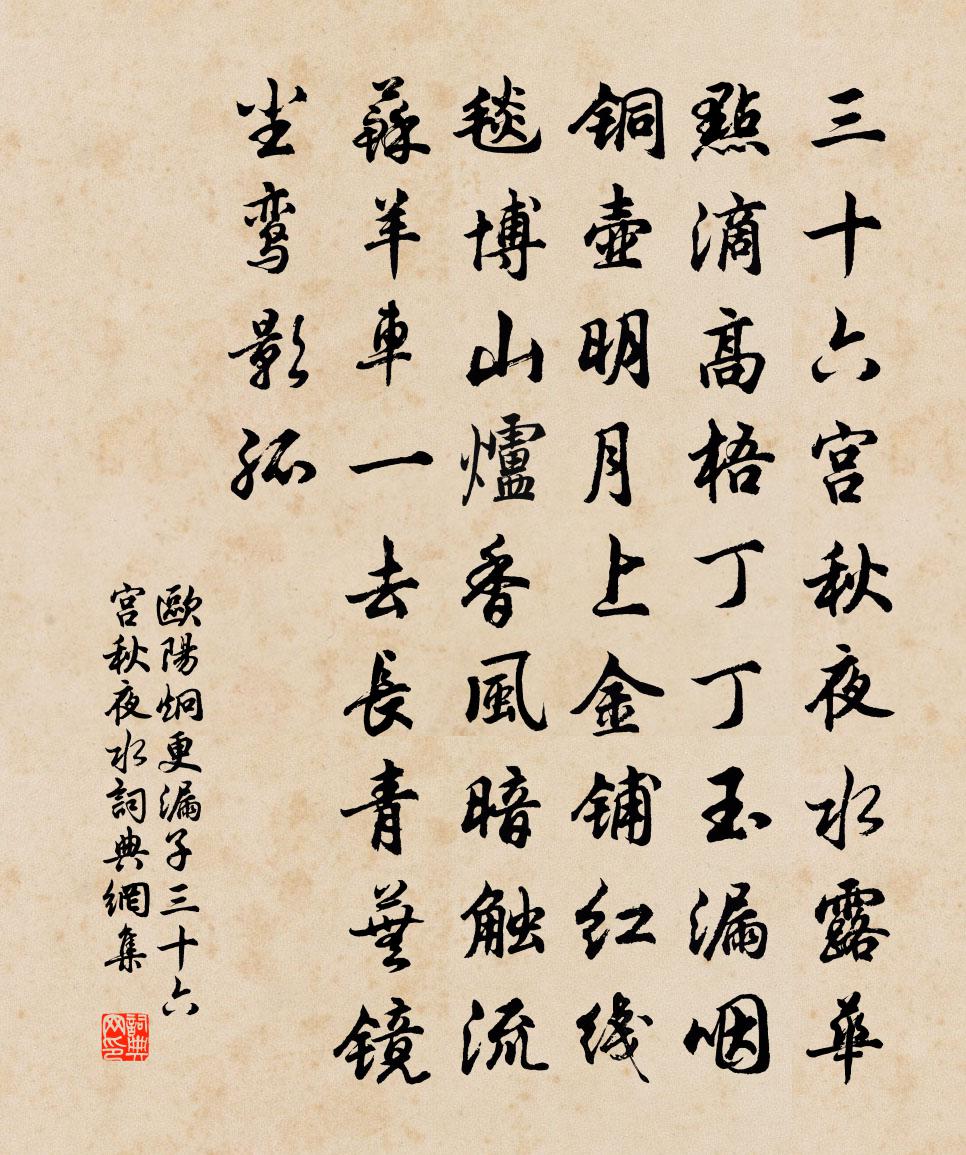 三十六宫秋夜水露華
點滴高梧丁丁玉漏咽
铜壺明月上金铺红线
毯博山爐香風暗触流
蘇羊車一去長青蕪镜
尘鸾影孤
歐陽炯更漏子三十六
宫秋夜水詞典網集
詞典网印